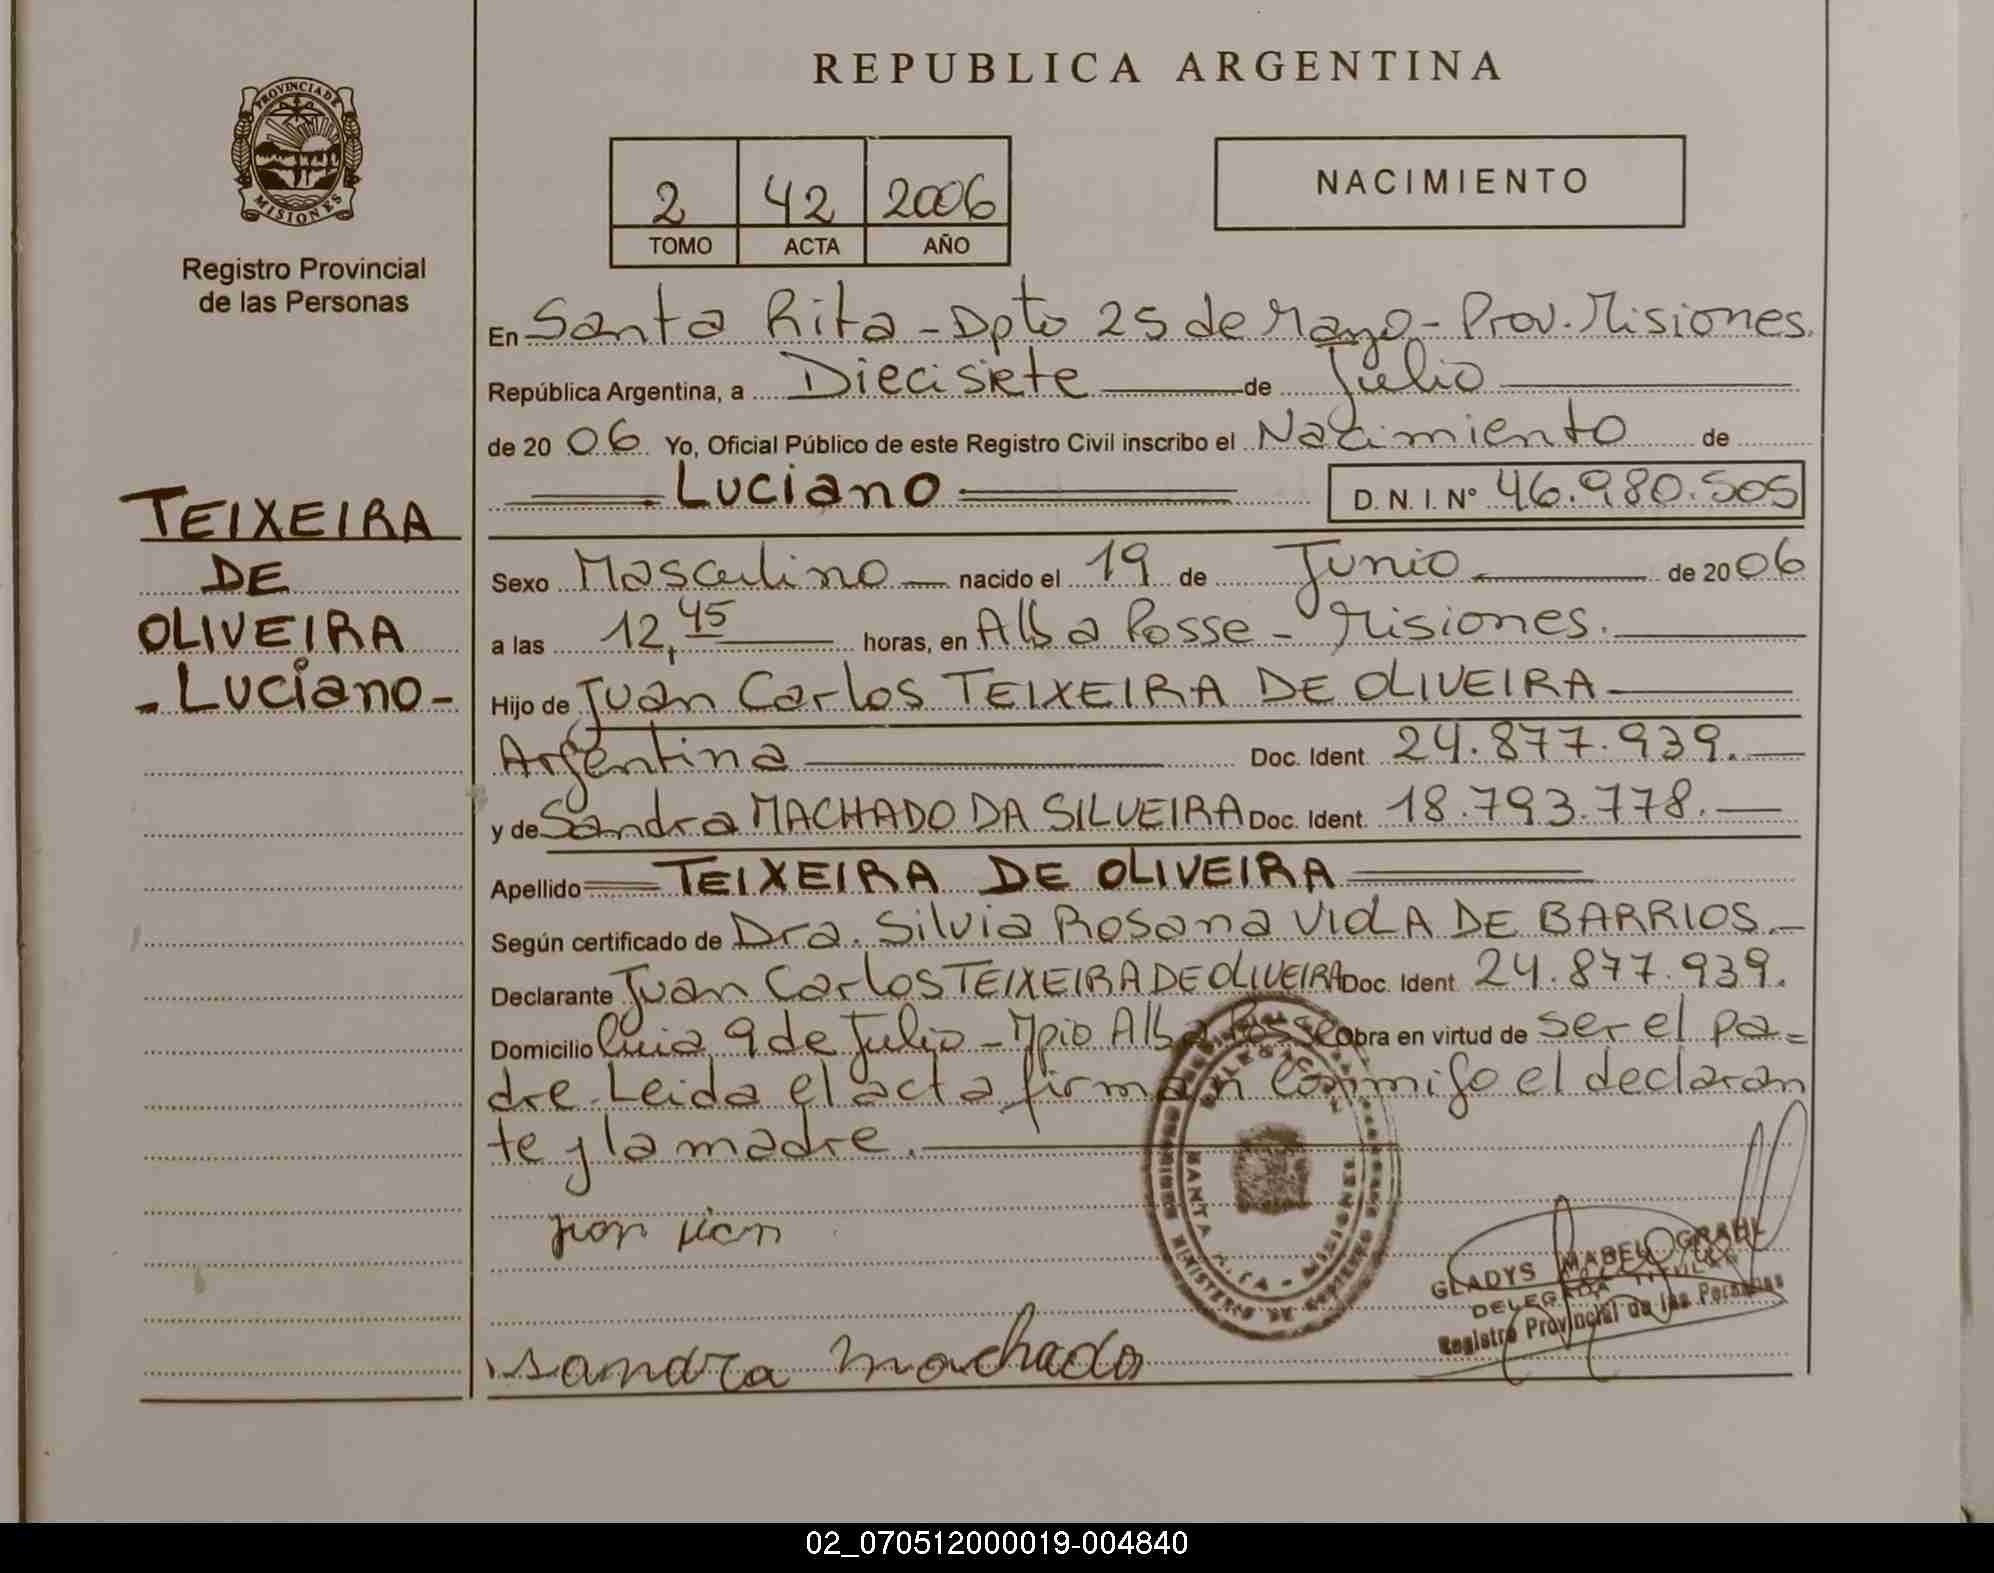 REPUBLICA ARGENTINA
PROVINCIA DE
MISIONES
Registro Provincial
de las Personas
2 42 2006
TOMO ACTA AÑO
NACIMIENTO
En Santa Rita - Dpto 25 de Mayo - Prov. Misiones.
República Argentina, a Diecisiete de Julio
de 20 06. Yo, Oficial Público de este Registro Civil inscribo el Nacimiento de
Luciano D. N. I. Nº 46.980.505
TEIXEIRA
DE
OLIVEIRA
- Luciano -
Sexo Masculino nacido el 19 de Junio de 20 06
a las 12,45 horas, en Alba Posse - Misiones.
Hijo de Juan Carlos TEIXEIRA DE OLIVEIRA
Argentina Doc. Ident. 24.877.939.
y de Sandra MACHADO DA SILVEIRA Doc. Ident. 18.793.778.
Apellido TEIXEIRA DE OLIVEIRA
Según certificado de Dra. Silvia Rosana VIOLA DE BARRIOS.
Declarante Juan Carlos TEIXEIRA DE OLIVEIRA Doc. Ident. 24.877.939.
Domicilio 9 de Julio - Mpio Alba Posse Obra en virtud de ser el pa=
dre. Leida el acta firman conmigo el declaran
te y la madre.
SANTA RITA - MISIONES
MINISTERIO DE GOBIERNO
GLADYS MABEL GRAHL
DELEGADA TITULAR
Registro Provincial de las Personas
sandra machado
02_070512000019-004840